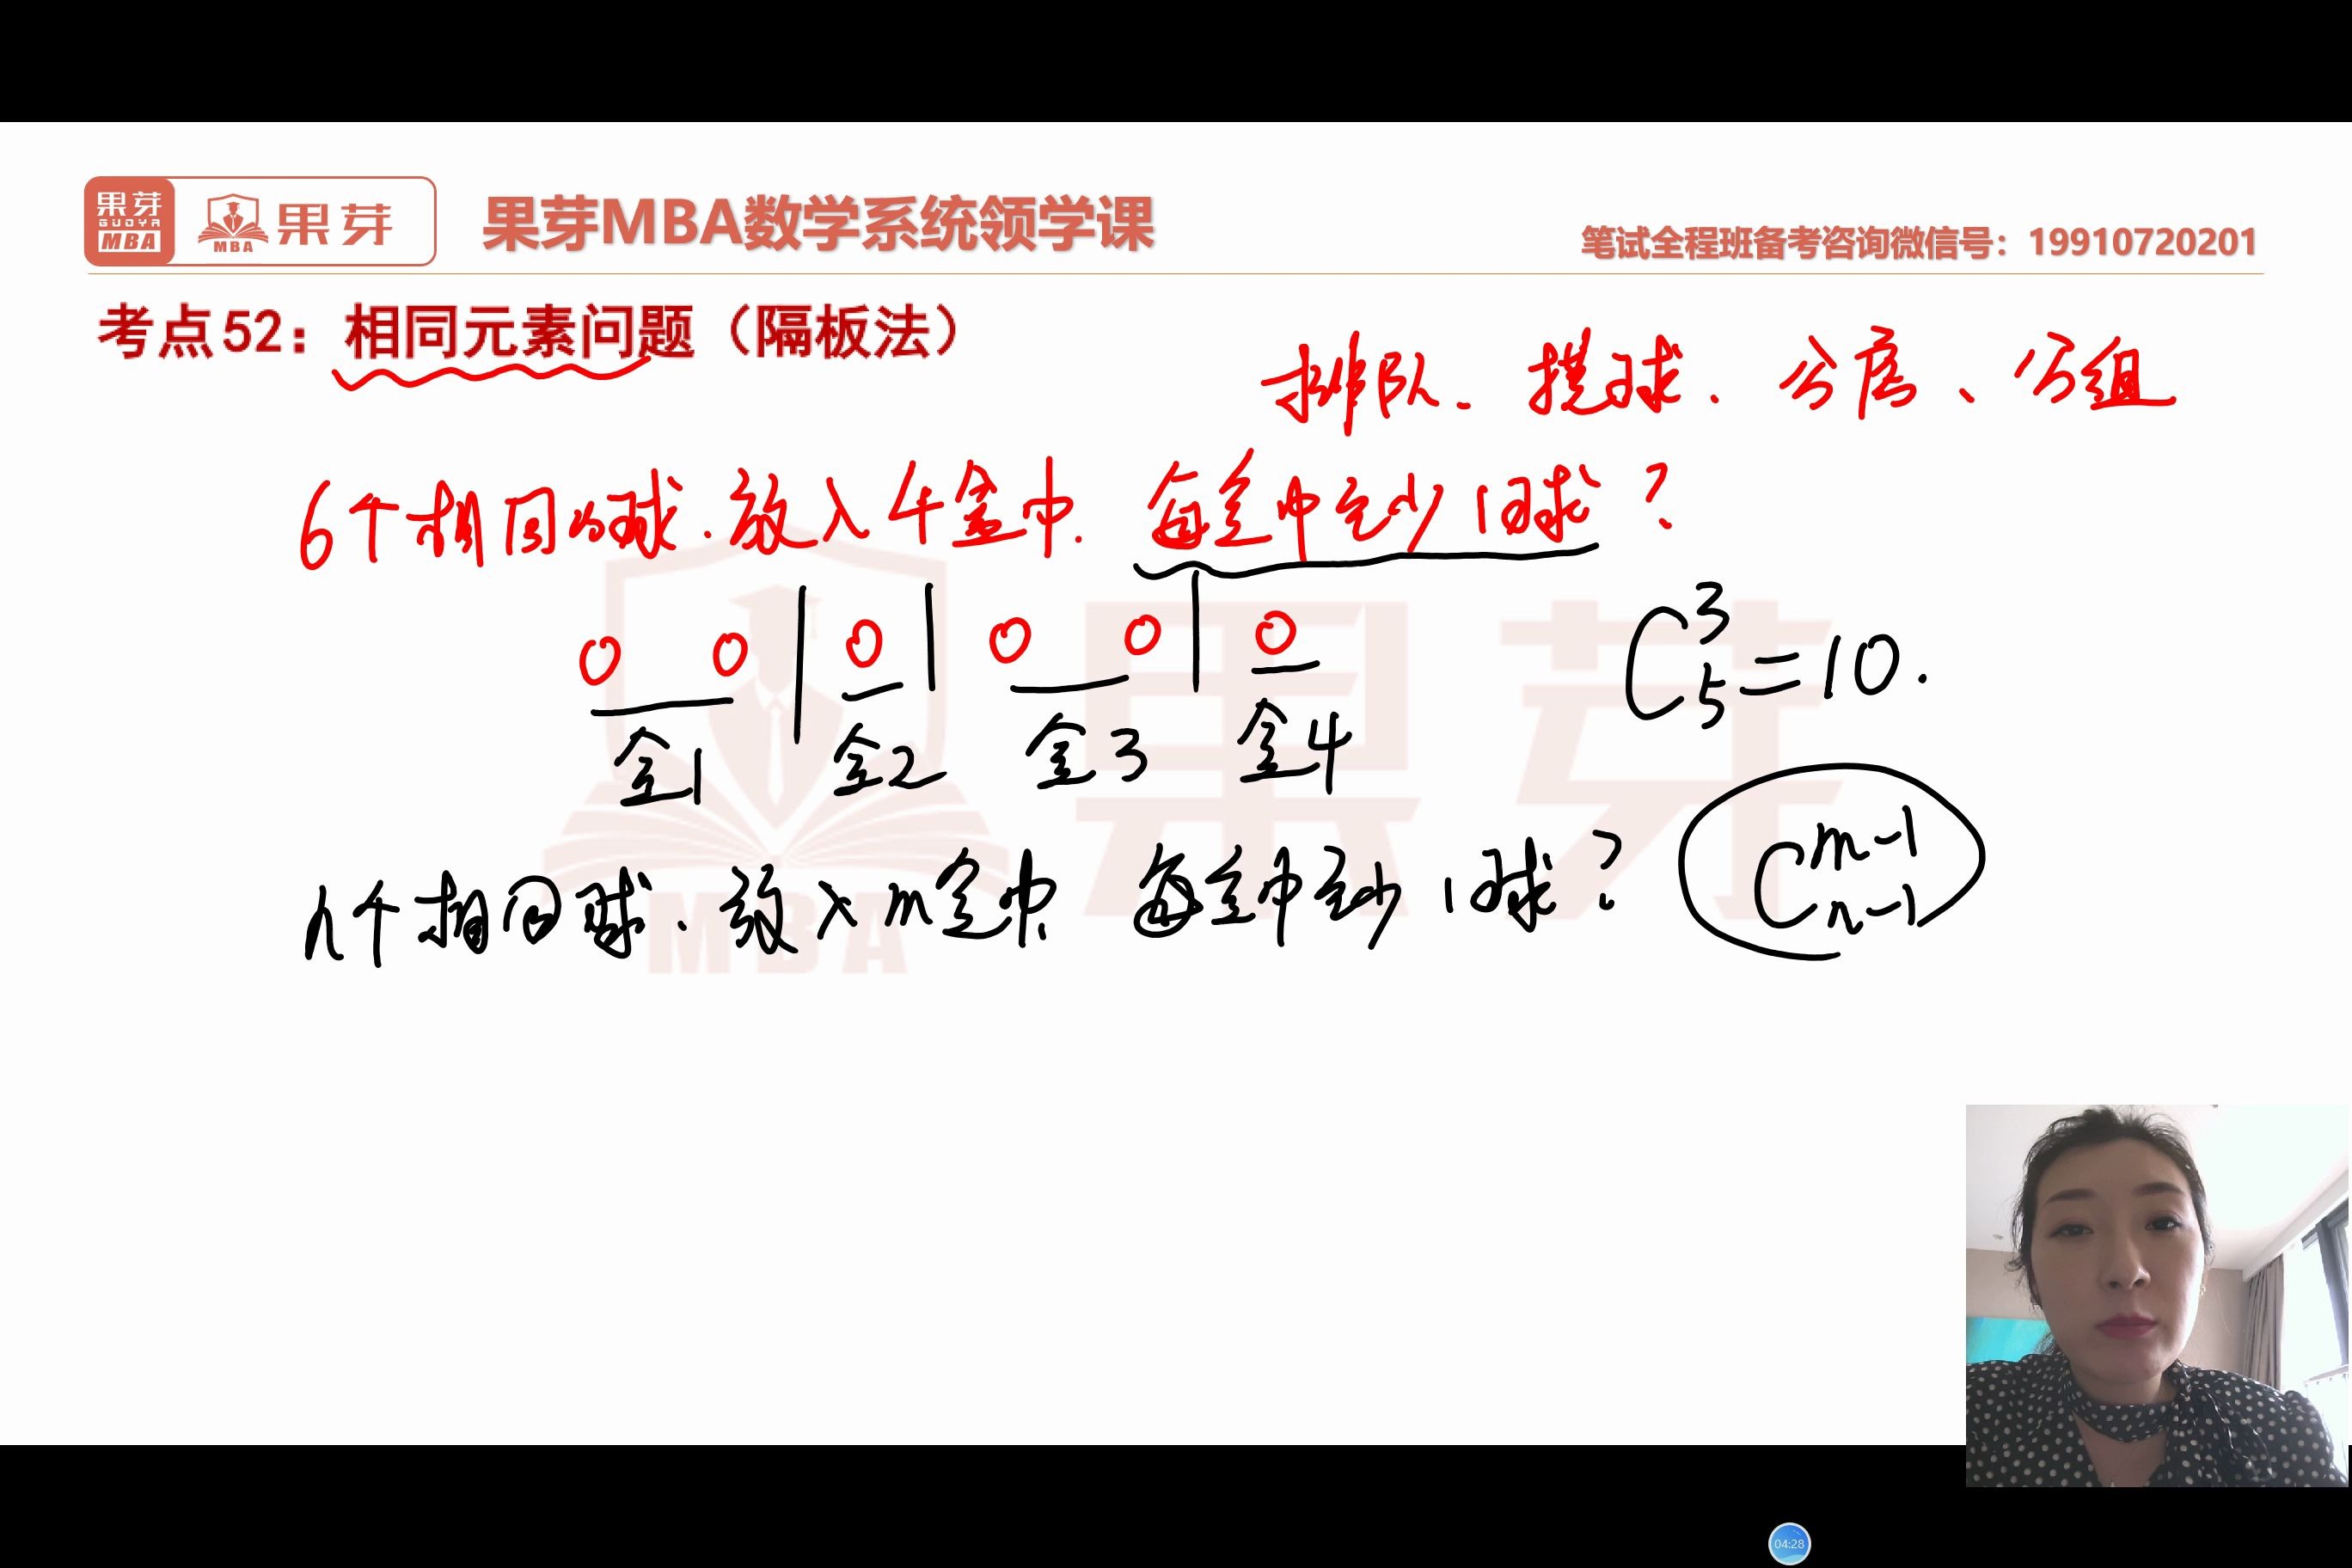 果芽 GUOYA MBA 果芽 MBA 果芽MBA数学系统领学课 笔试全程班备考咨询微信号：19910720201
考点52：相同元素问题（隔板法）
排队、摸球、分房、分组
6个相同的球.放入4盒中.每盒中至少1球？
0 0 | 0 | 0 0 | 0
盒1 盒2 盒3 盒4
C₅³=10.
n个相同球.放入m盒中.每盒中至少1球？ Cₙ₋₁ᵐ⁻¹
果芽
MBA
04:28